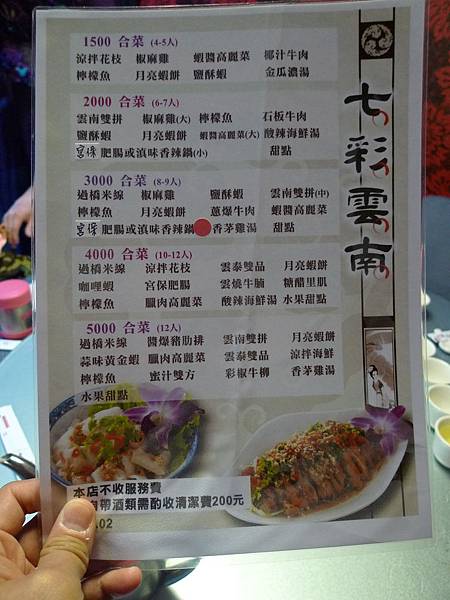 七彩雲南
1500 合菜 (4-5人)
涼拌花枝 椒麻雞 蝦醬高麗菜 椰汁牛肉
檸檬魚 月亮蝦餅 鹽酥蝦 金瓜濃湯
2000 合菜 (6-7人)
雲南雙拼 椒麻雞(大) 檸檬魚 石板牛肉
鹽酥蝦 月亮蝦餅 蝦醬高麗菜(大) 酸辣海鮮湯
宮保肥腸或滇味香辣鍋(小) 甜點
3000 合菜 (8-9人)
過橋米線 椒麻雞 鹽酥蝦 雲南雙拼(中)
檸檬魚 月亮蝦餅 蔥爆牛肉 蝦醬高麗菜
宮保肥腸或滇味香辣鍋 香茅雞湯 甜點
4000 合菜 (10-12人)
過橋米線 涼拌花枝 雲泰雙品 月亮蝦餅
咖哩蝦 宮保肥腸 雲燒牛腩 糖醋里肌
檸檬魚 臘肉高麗菜 酸辣海鮮湯 水果甜點
5000 合菜 (12人)
過橋米線 醬爆豬肋排 雲南雙拼 月亮蝦餅
蒜味黃金蝦 臘肉高麗菜 雲泰雙品 涼拌海鮮
檸檬魚 蜜汁雙方 彩椒牛柳 香茅雞湯
水果甜點
本店不收服務費
帶酒類需酌收清潔費200元
.02